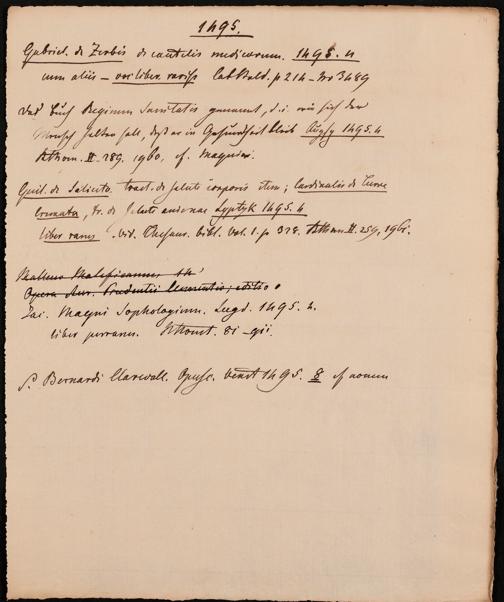 1495.
Gabriel. de Zerbis de cautelis medicorum. 1495. 4
cum aliis — liber rariss Cat. p 214 — No 3489
Das Buch Regimen Sanitatis genannt, d.i. wie sich der
Mensch halten soll, daß er in Gesundheit bleib Augsp 1495. 4
II. 289. 1960, cf. Magnini.
Guil. de Saliceto. tract. de salute corporis item; Cardinalis de Turre
cremata, tr. de salute animae Lyptzk 1495. 4
liber rarus. Vid. Thesaur. bibl. Vol. 1. p 328. II. 259, 196
Malleus Maleficarum
Opera Aur. Prudentii Clementis; editio
Jac. Magni Sophologium. Lugd. 1495. 4.
liber perrarus.
S. Bernardi Claravall. Opusc. Venet 1495. 8 cf nomen